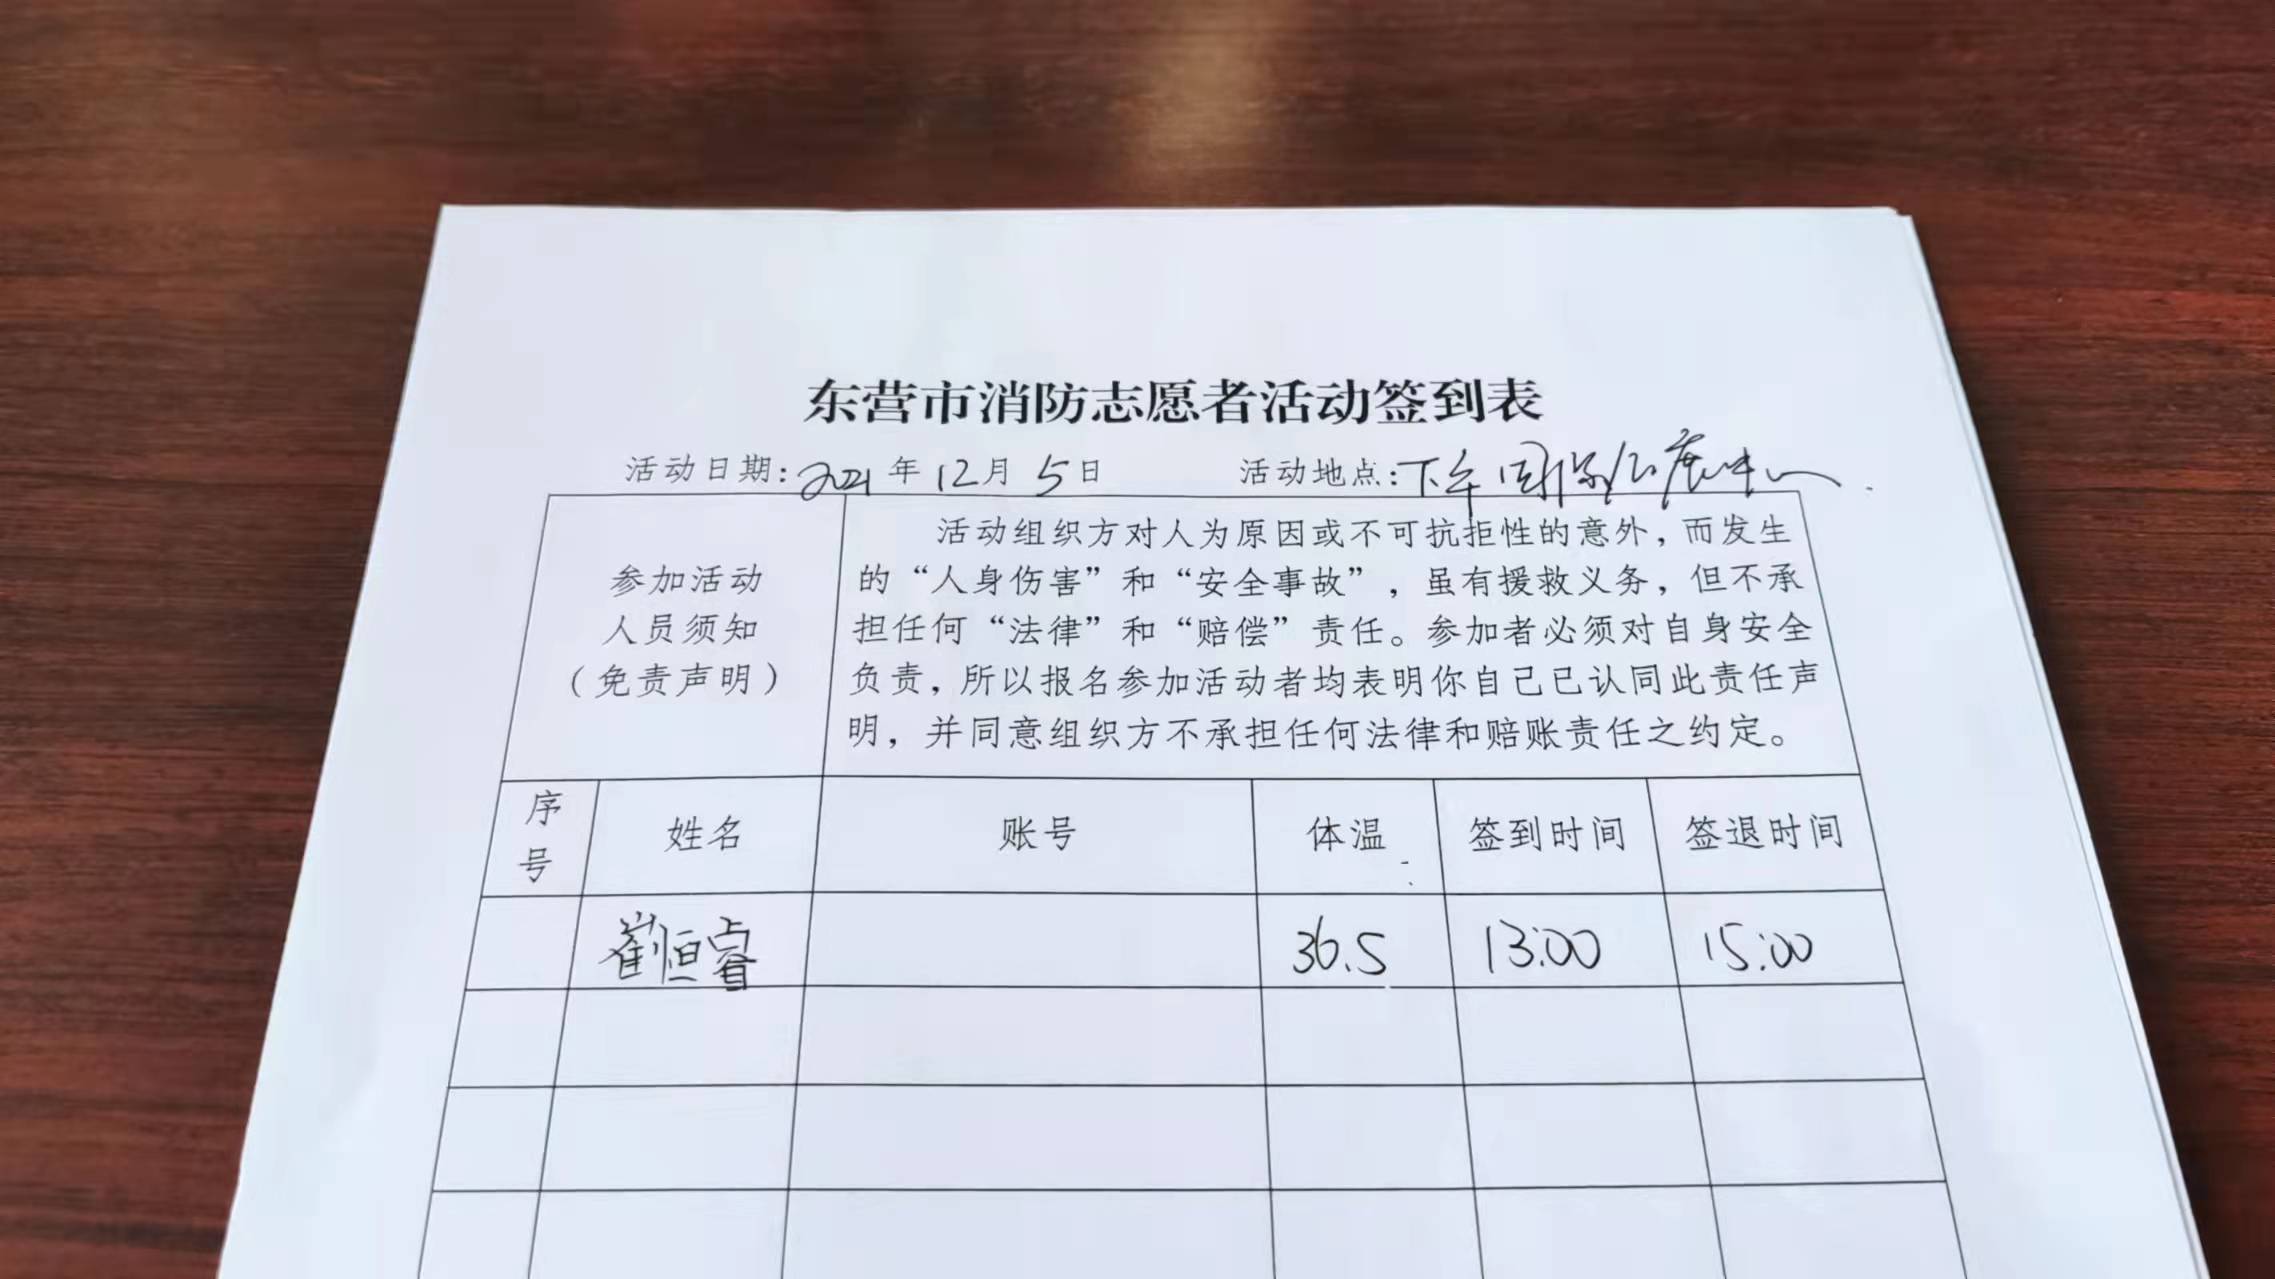 东营市消防志愿者活动签到表
活动日期:2021年12月5日 活动地点:下午
参加活动
人员须知
(免责声明)
活动组织方对人为原因或不可抗拒性的意外,而发生
的“人身伤害”和“安全事故”,虽有援救义务,但不承
担任何“法律”和“赔偿”责任。参加者必须对自身安全
负责,所以报名参加活动者均表明你自己已认同此责任声
明,并同意组织方不承担任何法律和赔账责任之约定。
序号 姓名 账号 体温 签到时间 签退时间
崔恒睿 36.5 13:00 15:00